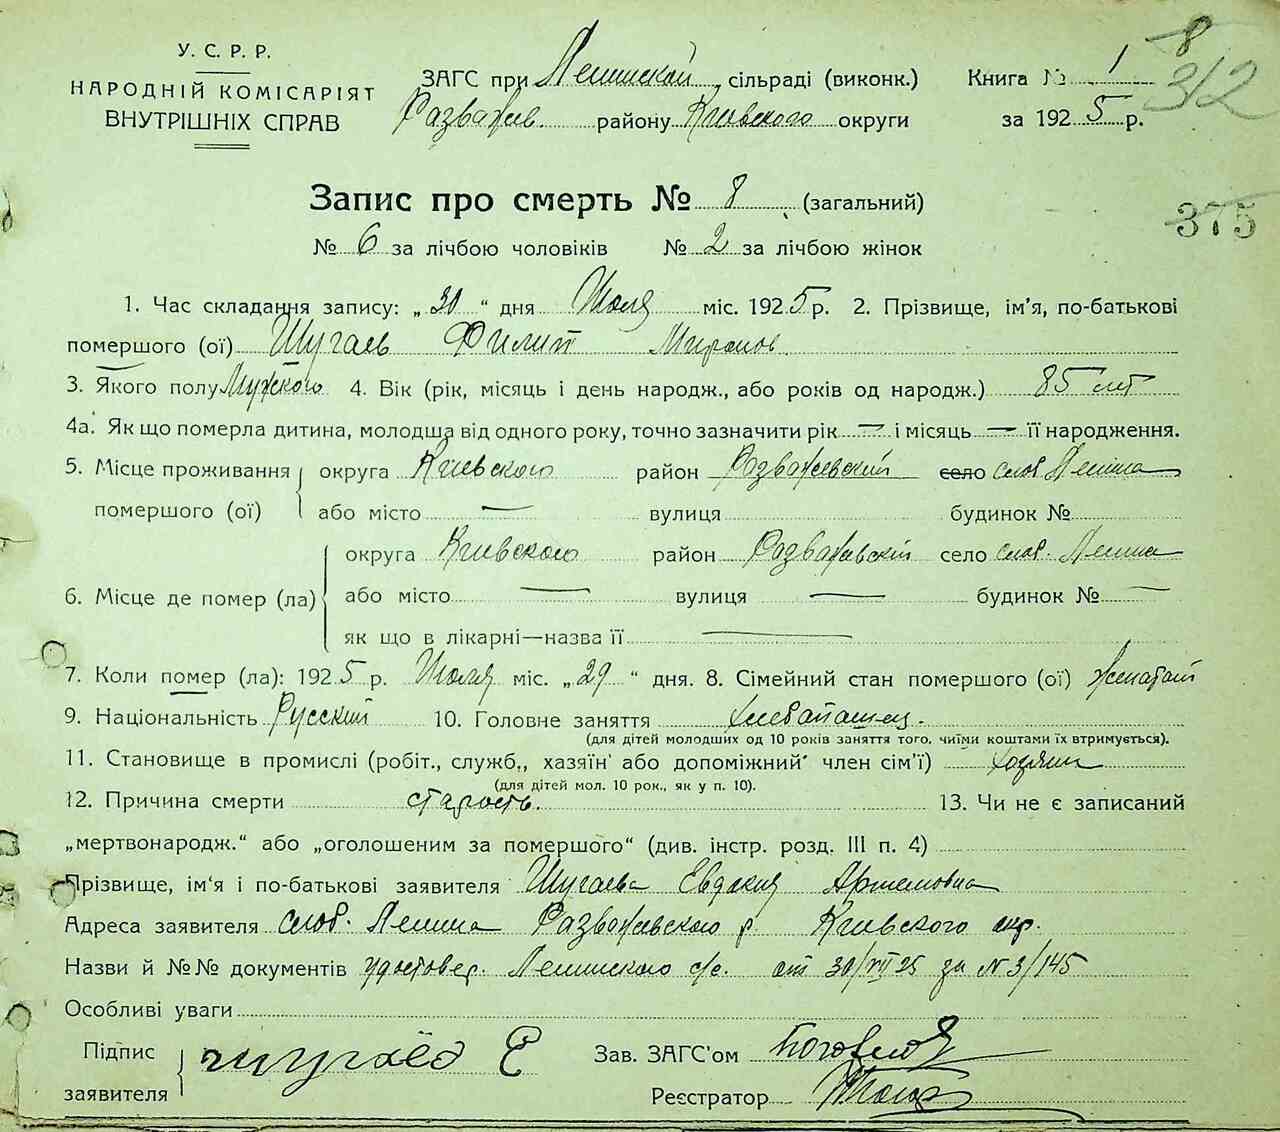 8
312
У. С. Р. Р.
НАРОДНІЙ КОМІСАРІЯТ
ВНУТРІШНІХ СПРАВ
ЗАГС при Ленинской сільраді (виконк.)
Разважев. району Киевского округи
Книга № 1
за 1925 р.
375
Запис про смерть № 8 (загальний)
№ 6 за лічбою чоловіків № 2 за лічбою жінок
1. Час складання запису: „30“ дня Июля міс. 1925 р. 2. Прізвище, ім'я, по-батькові
помершого (ої) Шугаев Филип Миронов
3. Якого полу Мужского 4. Вік (рік, місяць і день народж., або років од народж.) 85 лет
4а. Як що померла дитина, молодша від одного року, точно зазначити рік — і місяць — її народження.
5. Місце проживання помершого (ої) округа Киевского район Разважевский село слоб Ленина
або місто — вулиця будинок №
6. Місце де помер (ла) округа Киевского район Разважевский село слоб. Ленина
або місто — вулиця — будинок № —
як що в лікарні—назва її —
7. Коли помер (ла): 1925 р. Июля міс. „29“ дня. 8. Сімейний стан помершого (ої) женатый
9. Національність Русский 10. Головне заняття хлебопашец.
(для дітей молодших од 10 років заняття того, чиїми коштами їх втримується).
11. Становище в промислі (робіт., служб., хазяїн або допоміжний член сім'ї) хозяин
(для дітей мол. 10 рок., як у п. 10).
12. Причина смерти старость. 13. Чи не є записаний
„мертвонародж.“ або „оголошеним за помершого“ (див. інстр. розд. III п. 4)
Прізвище, ім'я і по-батькові заявителя Шугаева Евдокия Артемовна
Адреса заявителя слоб. Ленина Разважевского р Киевского окр.
Назви й №№ документів удостовер. Ленинского с/с. от 30/VII 25 за N 3/145
Особливі уваги
Підпис заявителя Е
Зав. ЗАГС'ом
Реєстратор